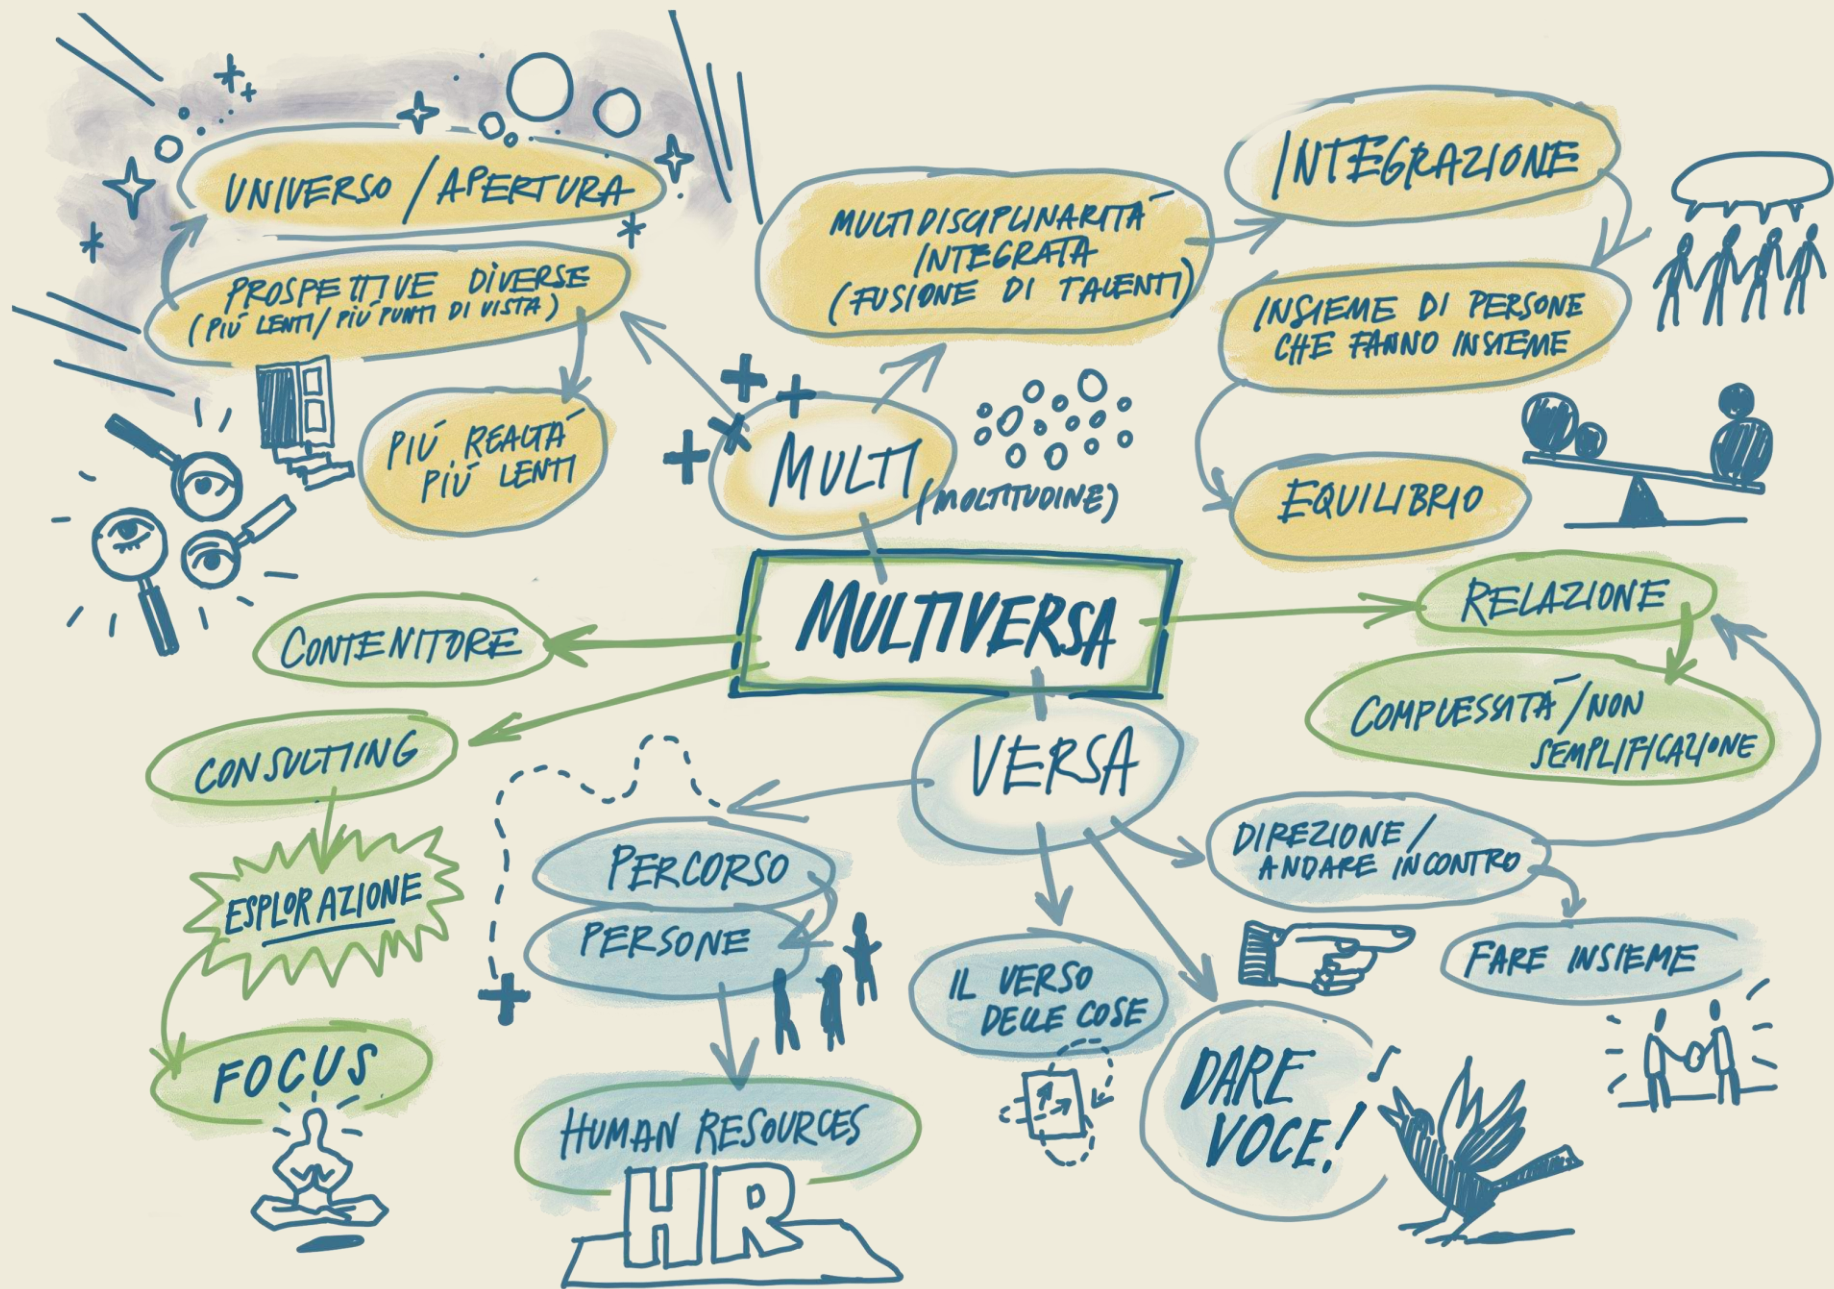 UNIVERSO / APERTURA
PROSPETTIVE DIVERSE
(PIÚ LENTI / PIÚ PUNTI DI VISTA)
PIÚ REALTÁ
PIÚ LENTI
MULTIDISCIPLINARITÁ
INTEGRATA
(FUSIONE DI TALENTI)
INTEGRAZIONE
INSIEME DI PERSONE
CHE FANNO INSIEME
EQUILIBRIO
MULTI
(MOLTITUDINE)
MULTIVERSA
CONTENITORE
CONSULTIING
ESPLORAZIONE
FOCUS
RELAZIONE
COMPLESSITÁ / NON
SEMPLIFICAZIONE
VERSA
PERCORSO
PERSONE
HUMAN RESOURCES
HR
IL VERSO
DELLE COSE
DARE
VOCE!
DIREZIONE /
ANDARE INCONTRO
FARE INSIEME